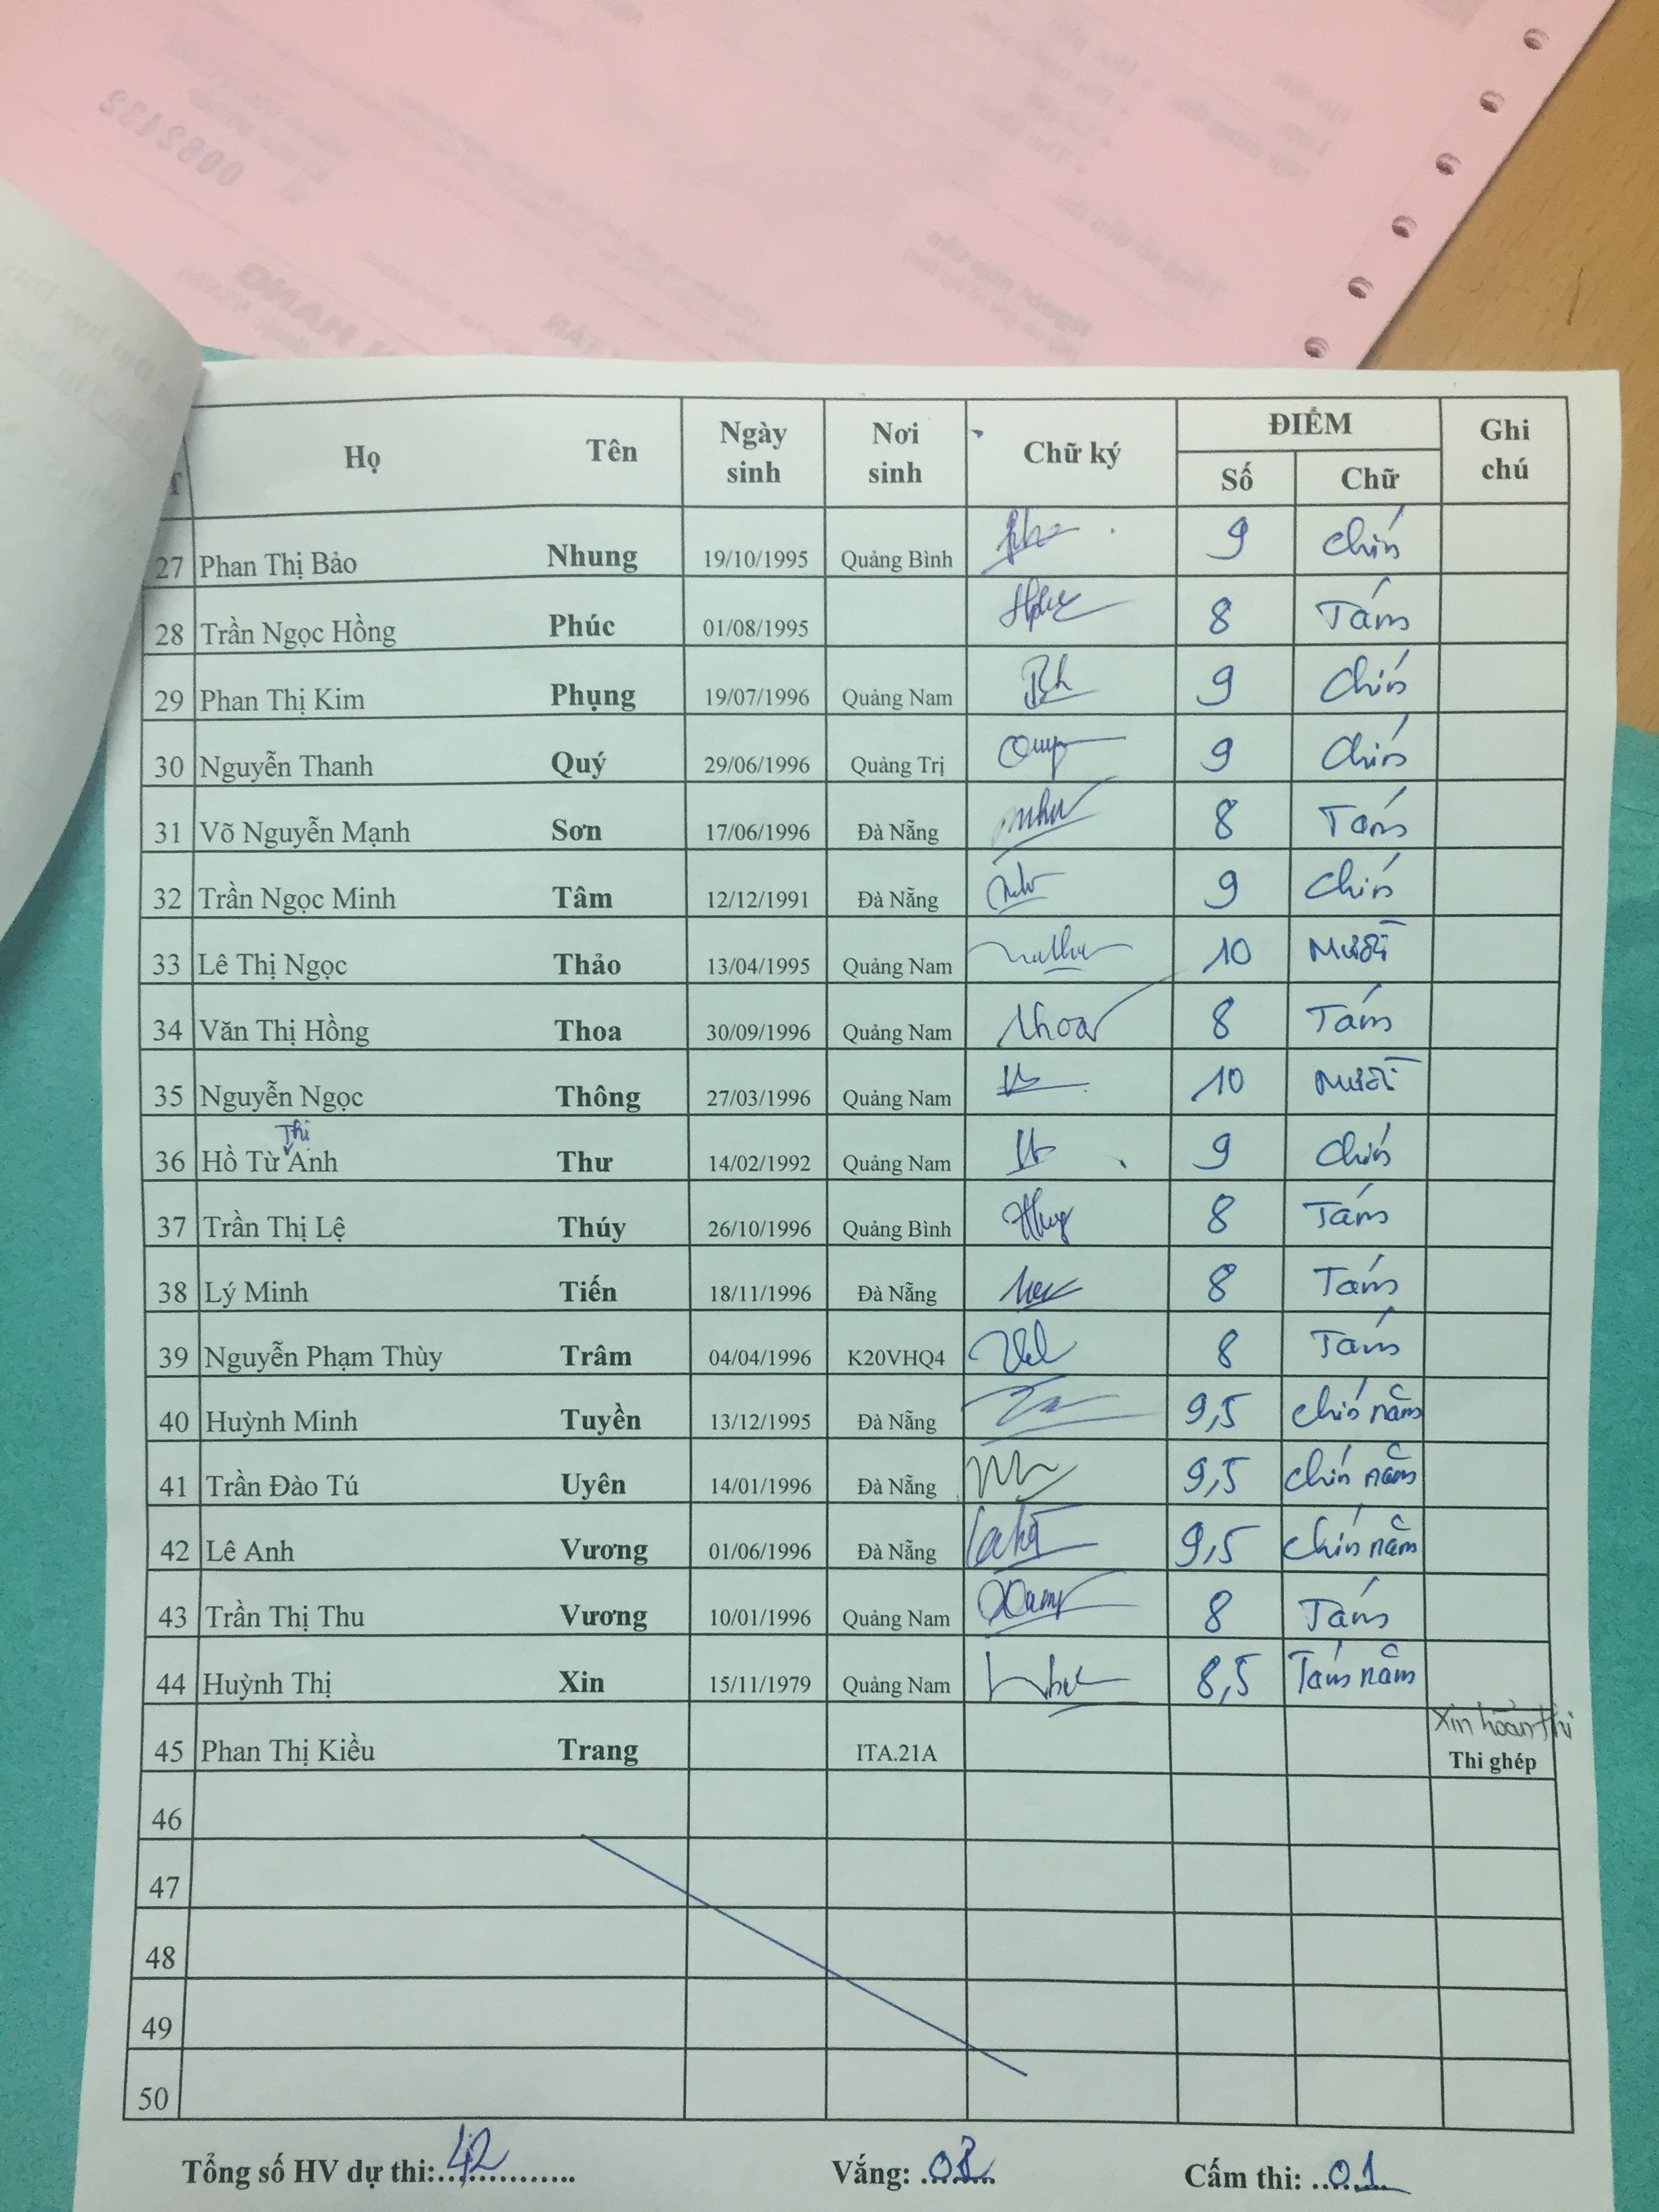 0082132
Họ Tên Ngày sinh Nơi sinh Chữ ký ĐIỂM Ghi chú
T Số Chữ
27 Phan Thị Bảo Nhung 19/10/1995 Quảng Bình 9 Chín
28 Trần Ngọc Hồng Phúc 01/08/1995 8 Tám
29 Phan Thị Kim Phụng 19/07/1996 Quảng Nam 9 Chín
30 Nguyễn Thanh Quý 29/06/1996 Quảng Trị 9 Chín
31 Võ Nguyễn Mạnh Sơn 17/06/1996 Đà Nẵng 8 Tám
32 Trần Ngọc Minh Tâm 12/12/1991 Đà Nẵng 9 Chín
33 Lê Thị Ngọc Thảo 13/04/1995 Quảng Nam 10 Mười
34 Văn Thị Hồng Thoa 30/09/1996 Quảng Nam Thoa 8 Tám
35 Nguyễn Ngọc Thông 27/03/1996 Quảng Nam 10 Mười
36 Hồ Từ Thị Anh Thư 14/02/1992 Quảng Nam 9 Chín
37 Trần Thị Lệ Thúy 26/10/1996 Quảng Bình 8 Tám
38 Lý Minh Tiến 18/11/1996 Đà Nẵng 8 Tám
39 Nguyễn Phạm Thùy Trâm 04/04/1996 K20VHQ4 8 Tám
40 Huỳnh Minh Tuyền 13/12/1995 Đà Nẵng 9,5 Chín năm
41 Trần Đào Tú Uyên 14/01/1996 Đà Nẵng 9,5 Chín năm
42 Lê Anh Vương 01/06/1996 Đà Nẵng 9,5 Chín năm
43 Trần Thị Thu Vương 10/01/1996 Quảng Nam 8 Tám
44 Huỳnh Thị Xin 15/11/1979 Quảng Nam 8,5 Tám năm
Xin hoãn thi
45 Phan Thị Kiều Trang ITA.21A Thi ghép
46
47
48
49
50
Tổng số HV dự thi:...42... Vắng: ........ Cấm thi: ..01..